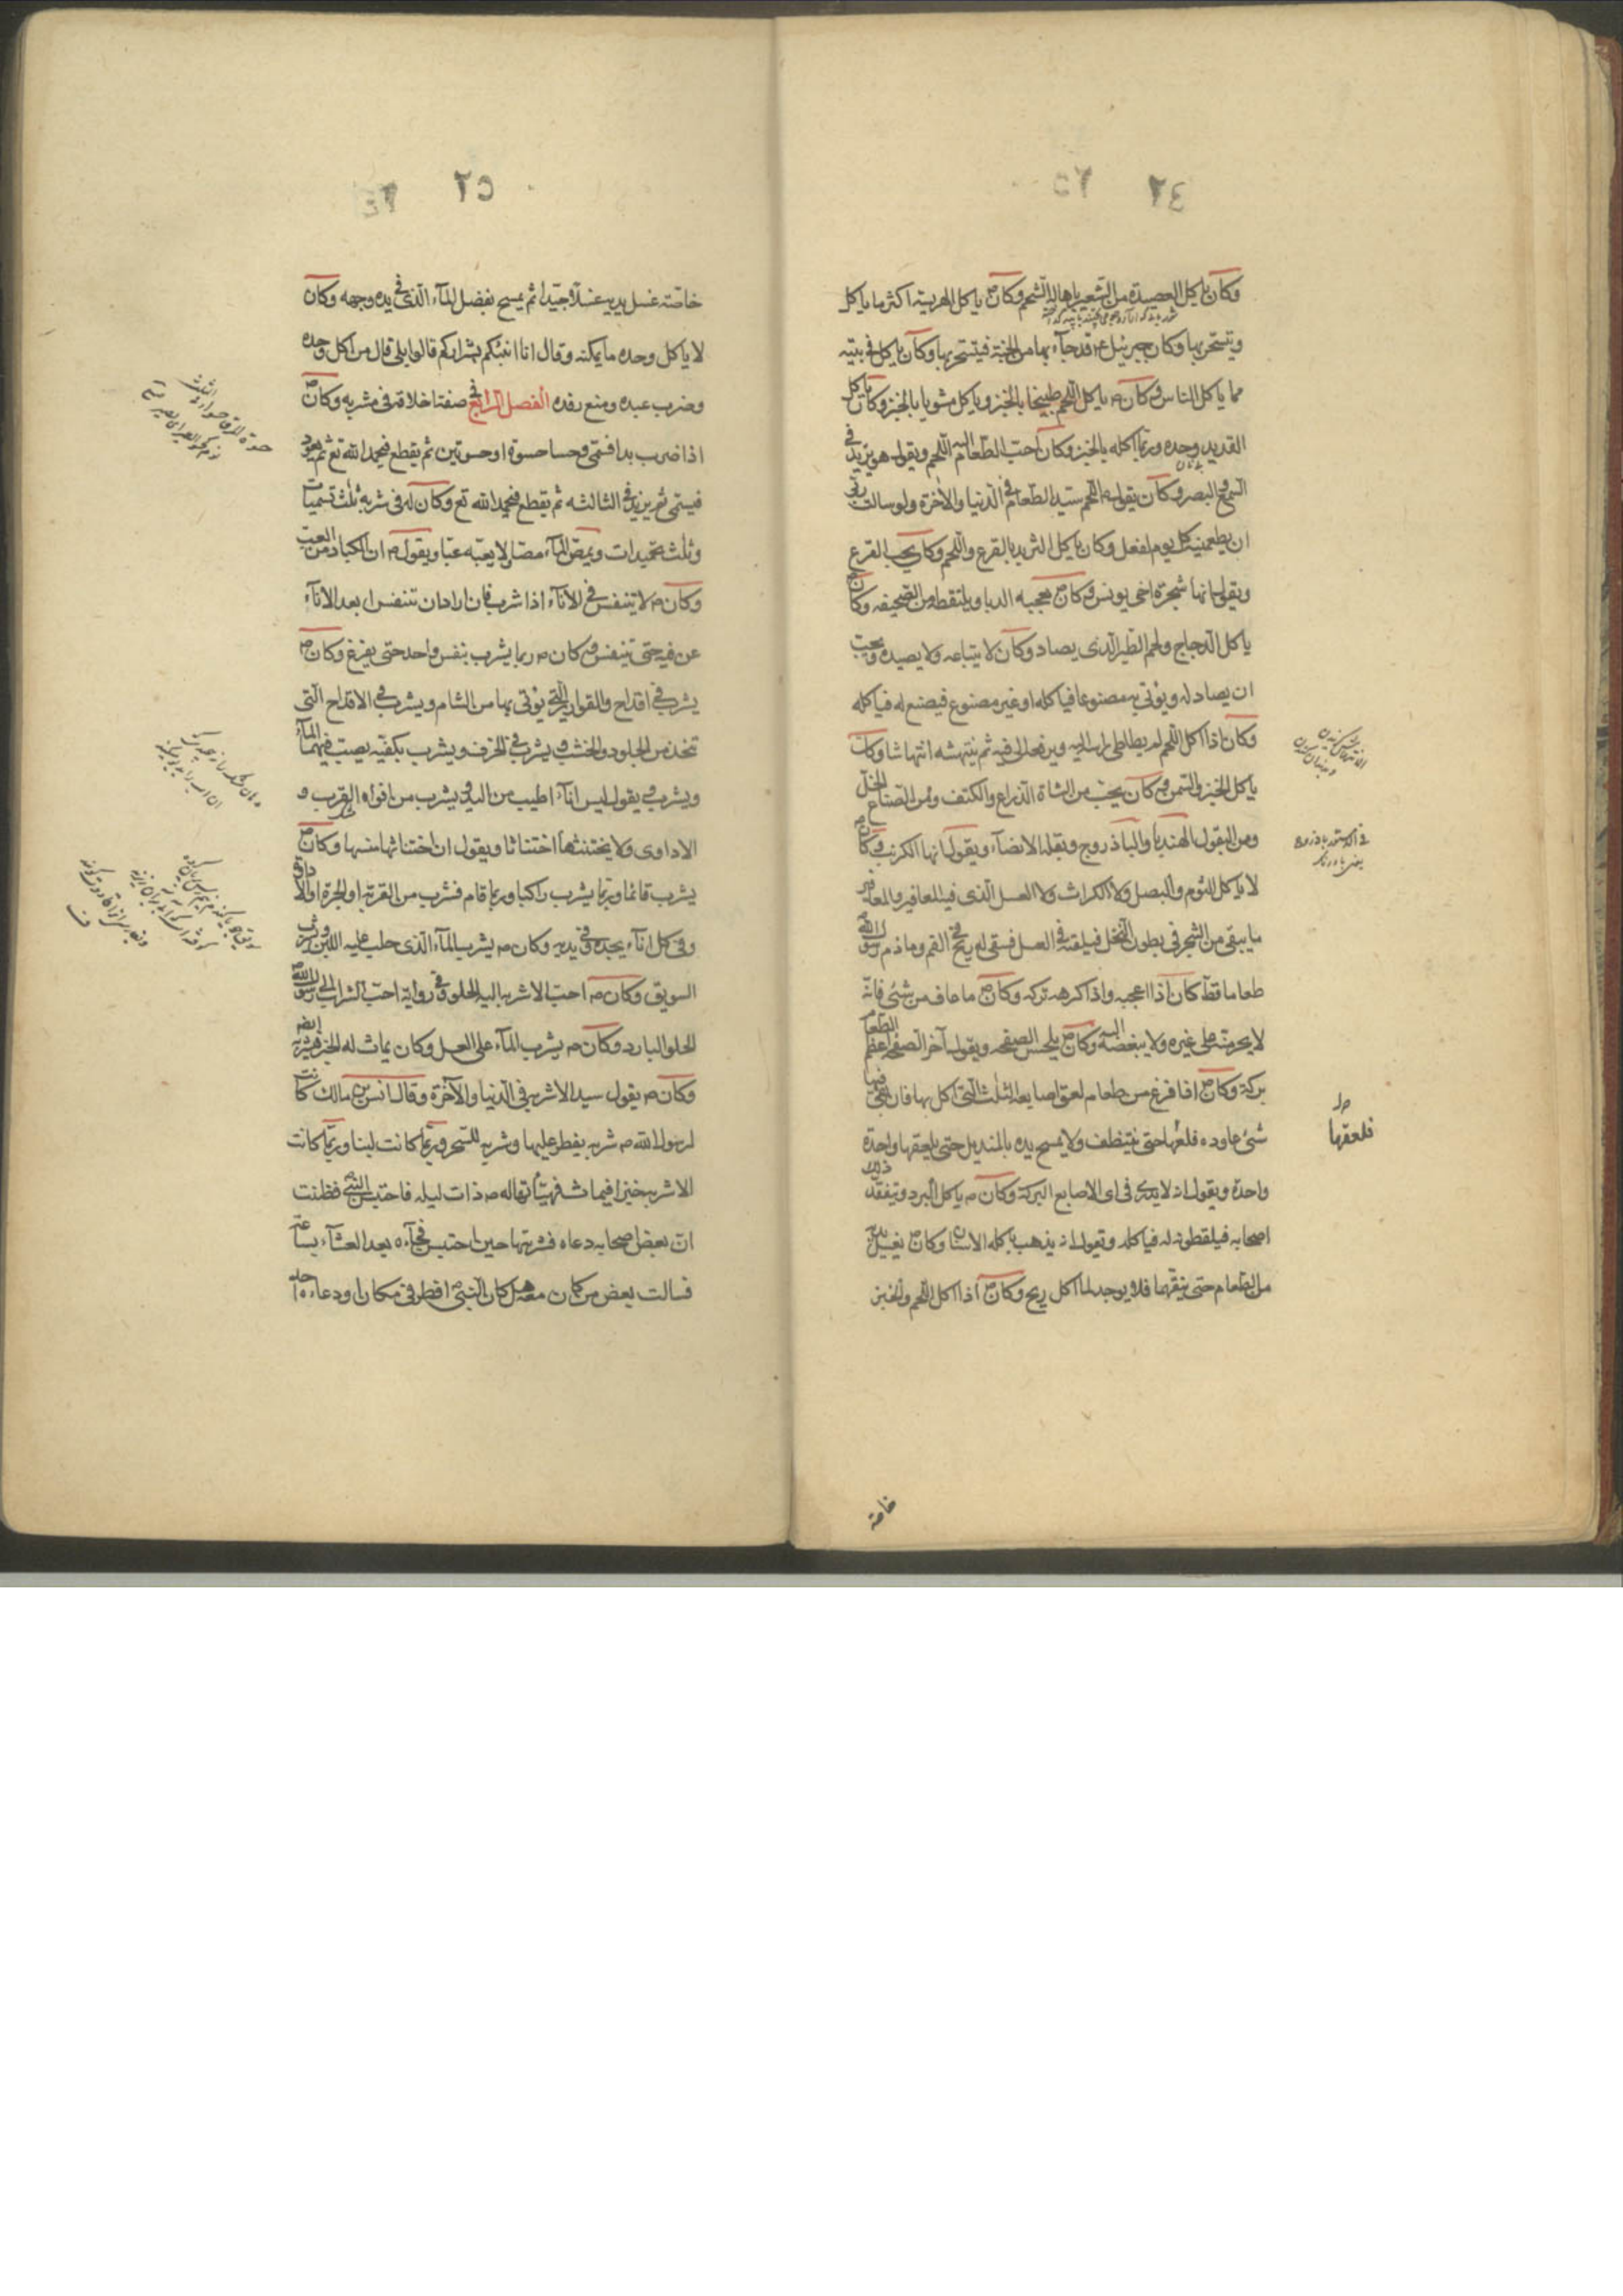 ٢٤
وكان ياكل العصيدة من الشعير باهالة الشحم وكان ص ياكل الهريسة اكثر ما ياكل
ويتسحر بها وكان جبرئيل ع قد جآء بها من الجنة فيتسحر بها وكان ياكل في بيته
مما ياكل الناس وكان ص ياكل اللحم طبيخا بالخبز وياكل مشويا بالخبز وكان ياكل
القديد وحده وربما اكله بالخبز وكان احب الطعام اليه اللحم ويقول هو يزيد في
السمع والبصر وكان يقول ص اللحم سيد الطعام في الدنيا والاخرة ولو سالت ربي
ان يطعمنيه كل يوم لفعل وكان ياكل الثريد بالقرع واللحم وكان يحب القرع
ويقول انها شجرة اخي يونس وكان ص يعجبه الدبا ويلتقطه من الصحيفه وكان ص
ياكل الدجاج ولحم الطير الذي يصاد وكان لا يبتاعه ولا يصيده ويحب
ان يصاد له ويؤتى به مصنوعا فياكله او غير مصنوع فيصنع له فياكله
وكان اذا اكل اللحم لم يطاطئ راسه اليه ويرفعه الى فيه ثم ينتهشه انتهاشا وكان
ياكل الخبز والسمن وكان يحب من الشاة الذراع والكتف ومن الصباغ الخل
ومن البقول الهندبا والباذروج وبقلة الانصآء ويقول انها الكرنب وكان ص
لا ياكل الثوم والبصل ولا الكراث ولا العسل الذي فيه المعافير والمعافير
ما يبقى من الشجر في بطون النحل فيلقه في العسل فيبقى له ريح في الفم وما ذم رسول الله ص
طعاما قط كان اذا اعجبه واذا كرهه تركه وكان ص ما عاف من شئ فانه
لا يحرمه على غيره ولا يبغضه اليه وكان ص يلحس الصحفه ويقول آخر الصحفه اعظم الطعام
بركة وكان ص اذا فرغ من طعام لعق اصابعه الثلث التي اكل بها فان بقي فيها
شئ عاوده فلعقها حتى يتنظف ولا يمسح يده بالمنديل حتى يلعقها واحدة
واحدة ويقول انه لا يدرى في اى الاصابع البركة وكان ص ياكل البرد ويتفقد ذلك
اصحابه فيلقطونه له فياكله ويقول انه يذهب باكله الاسنان وكان ص يغسل يديه
من الطعام حتى ينقيهما فلا يوجد لما اكل ريح وكان ص اذا اكل اللحم والخبز
فلعقها
خاصة
٢٥
خاصة غسل يديه غسلا جيدا ثم يمسح بفضل المآء الذي في يده وجهه وكان
لا ياكل وحده ما يمكنه وقال انا انبئكم بشراركم قالوا بلى قال من اكل وحده
وضرب عبده ومنع رفده الفصل الرابع في صفة اخلاقه في مشربه وكان ص
اذا شرب بدا فسمى وحسا حسوة او حسوتين ثم يقطع فيحمد الله تع ثم يعود
فيسمى ثم يزيد في الثالثه ثم يقطع فيحمد الله تع وكان له في شربه ثلث تسميات
وثلث تحميدات ويمص المآء مصا لا يعبه عبا ويقول ص ان الكباد من العب
وكان ص لا يتنفس في الانآء اذا شرب فان اراد ان يتنفس ابعد الانآء
عن فيه حتى يتنفس وكان ص ربما يشرب بنفس واحد حتى يفرغ وكان ص
يشرب في اقداح والقوارير التي يؤتى بها من الشام ويشرب في الاقداح التي
تتخذ من الجلود والخشب ويشرب في الخزف ويشرب بكفيه يصب فيهما المآء
ويشرب ويقول ليس انآء اطيب من اليد ويشرب من افواه القرب و
الاداوى ولا يختنثها اختناثا ويقول ان اختناثها ينتنها وكان ص
يشرب قائما وربما يشرب راكبا وربما قام فشرب من القربة او الجرة او الاداوة
وفي كل انآء يجده وفي يديه وكان ص يشرب المآء الذي حلب عليه اللبن ويشرب
السويق وكان ص احب الاشربه اليه الحلو وفي رواية احب الشراب الى رسول الله ص
الحلو البارد وكان ص يشرب المآء على العسل وكان يماث له الخبز فيشربه ايضا
وكان ص يقول سيد الاشربه في الدنيا والآخرة وقال انس بن مالك كانت
لرسول الله ص شربه يفطر عليها وشربه للسحر وربما كانت لبنا وربما كانت
الاشربه خبزا فيماث فهيئتها له ص ذات ليله فاحتبس النبي ص فظننت
ان بعض اصحابه دعاه فشربتها حين احتبس فجآء ه بعد العشآء بساعة
فسالت بعض من كان معه هل كان النبي ص افطر في مكان او دعاه احد